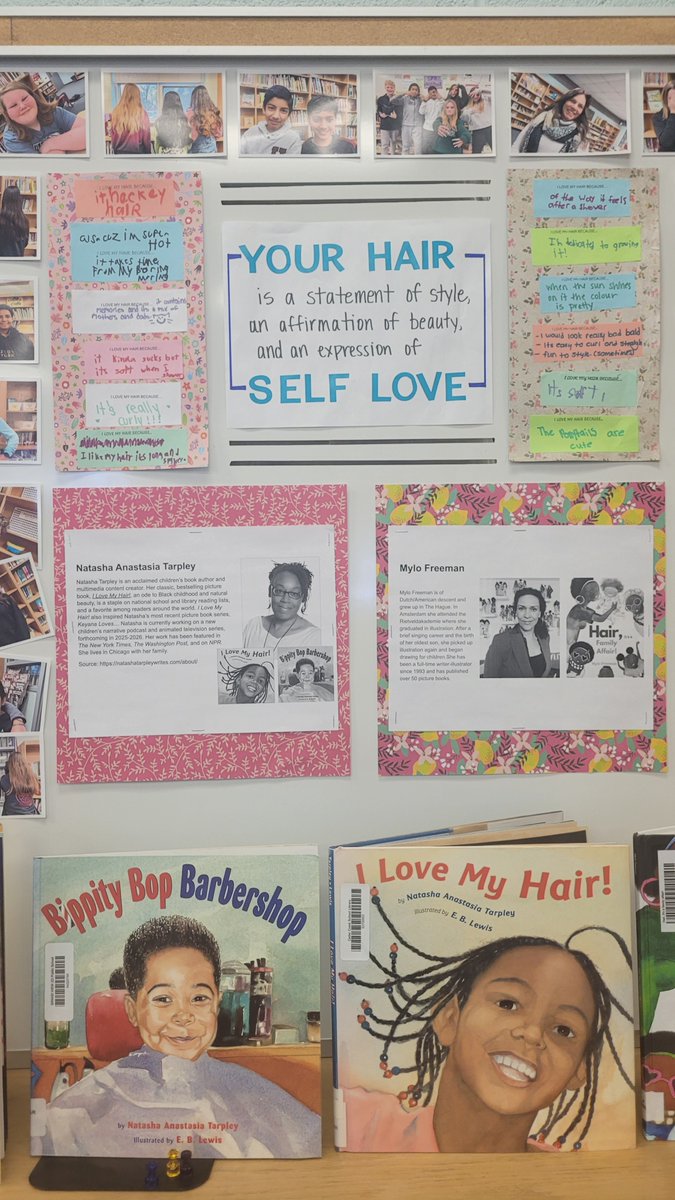 I LOVE MY HAIR BECAUSE...
it hockey
hair
also cuz im super
HOT
I LOVE MY HAIR BECAUSE...
it takes time
From My Boring
I LOVE MY HAIR BECAUSE...
it contains
memories and its a mix of
mothers and dads
I LOVE MY HAIR BECAUSE...
it Kinda sucks but
its soft when I shower
I LOVE MY HAIR BECAUSE...
It's really
curly!!
I LOVE MY HAIR BECAUSE...
I like my hair its long and
YOUR HAIR
is a statement of style,
an affirmation of beauty,
and an expression of
SELF LOVE
I LOVE MY HAIR BECAUSE...
of the way it feels
after a shower
I LOVE MY HAIR BECAUSE...
Im to growing
it!
I LOVE MY HAIR BECAUSE...
when the sun shines
on it the colour
is pretty
I LOVE MY HAIR BECAUSE...
- I would look really bad bald
- its easy to curl and
fun to style (sometimes)
I LOVE MY HAIR BECAUSE...
Its soft
I LOVE MY HAIR BECAUSE...
The Ponytails are
cute
Natasha Anastasia Tarpley
Natasha Tarpley is an acclaimed children's book author and
multimedia content creator. Her classic, bestselling picture
book, I Love My Hair!, an ode to Black childhood and natural
beauty, is a staple on national school and library reading lists,
and a favorite among readers around the world. I Love My
Hair! also inspired Natasha's most recent picture book series,
Keyana Loves... Natasha is currently working on a new
children's narrative podcast and animated television series,
forthcoming in 2025-2026. Her work has been featured in
The New York Times, The Washington Post, and on NPR.
She lives in Chicago with her family.
Source: https://natashatarpleywrites.com/about/
I Love My Hair!
Bippity Bop Barbershop
Mylo Freeman
Mylo Freeman is of
Dutch/American descent and
grew up in The Hague. In
Amsterdam she attended the
Rietveldakademie where she
graduated in illustration. After a
brief singing career and the birth
of her oldest son, she picked up
illustration again and began
drawing for children. She has
been a full-time writer-illustrator
since 1993 and has published
over 50 picture books.
Hair,
It's a
Family
Affair!
Bippity Bop Barbershop
by Natasha Anastasia Tarpley
Illustrated by E. B. Lewis
I Love My Hair!
by Natasha Anastasia Tarpley
Illustrated by E. B. Lewis